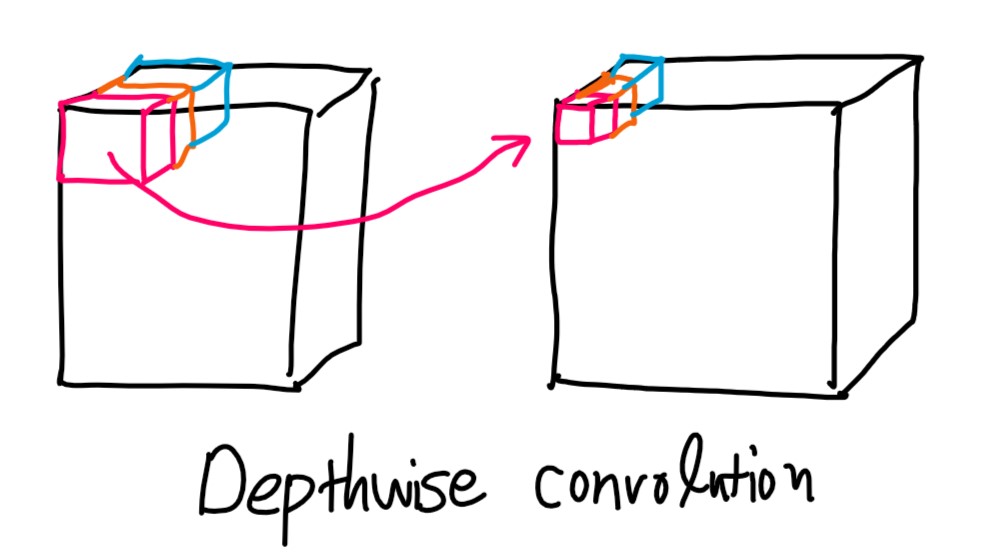 Depthwise convolution